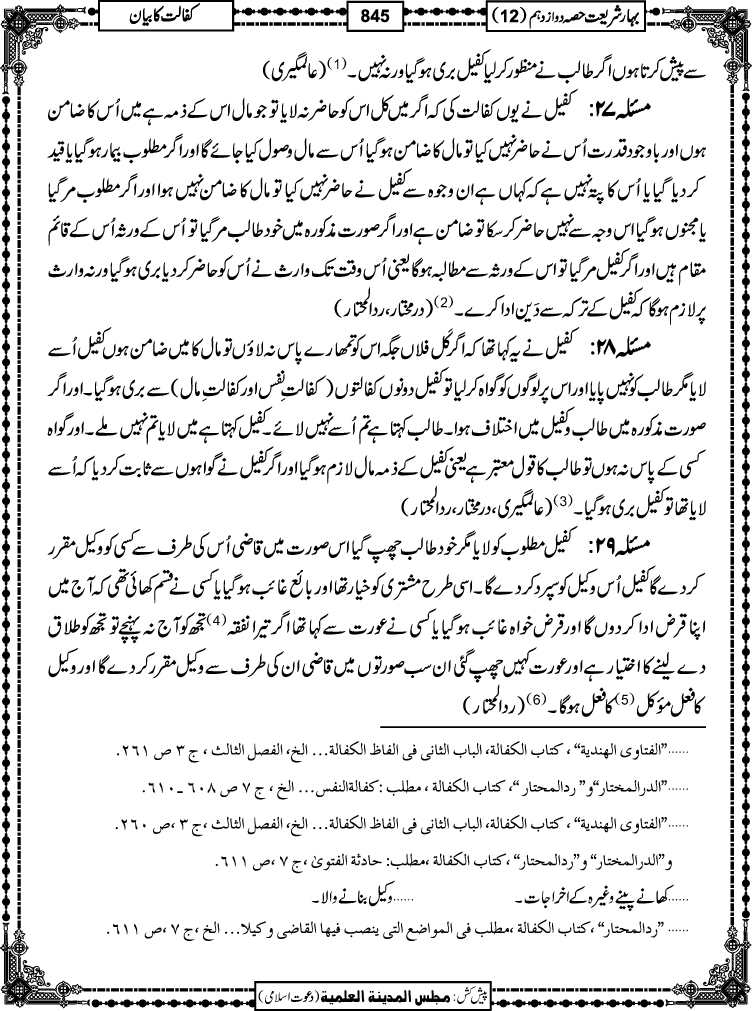 بہار شریعت حصہ دوازدہم (12)
845
کفالت کا بیان
سے پیش کرتا ہوں اگر طالب نے منظور کرلیا کفیل بری ہوگیا ورنہ نہیں۔(1) (عالمگیری)
مسئلہ ۲۷: کفیل نے یوں کفالت کی کہ اگر میں کل اس کو حاضر نہ لایا تو جو مال اس کے ذمہ ہے میں اُس کا ضامن
ہوں اور باوجود قدرت اُس نے حاضر نہیں کیا تو مال کا ضامن ہوگیا اُس سے مال وصول کیا جائے گا اور اگر مطلوب بیمار ہوگیا یا قید
کردیا گیا یا اُس کا پتہ نہیں ہے کہ کہاں ہے ان وجوہ سے کفیل نے حاضر نہیں کیا تو مال کا ضامن نہیں ہوا اور اگر مطلوب مرگیا
یا مجنوں ہوگیا اس وجہ سے نہیں حاضر کرسکا تو ضامن ہے اور اگر صورت مذکورہ میں خود طالب مرگیا تو اُس کے ورثہ اُس کے قائم
مقام ہیں اور اگر کفیل مرگیا تو اس کے ورثہ سے مطالبہ ہوگا یعنی اُس وقت تک وارث نے اُس کو حاضر کردیا بری ہوگیا ورنہ وارث
پر لازم ہوگا کہ کفیل کے ترکہ سے دَین ادا کرے۔(2) (درمختار، ردالمحتار)
مسئلہ ۲۸: کفیل نے یہ کہا تھا کہ اگر کَل فلاں جگہ اس کو تمھارے پاس نہ لاؤں تو مال کا میں ضامن ہوں کفیل اُسے
لایا مگر طالب کو نہیں پایا اور اس پر لوگوں کو گواہ کرلیا تو کفیل دونوں کفالتوں (کفالتِ نفس اور کفالتِ مال) سے بری ہوگیا۔ اور اگر
صورت مذکورہ میں طالب و کفیل میں اختلاف ہوا۔ طالب کہتا ہے تم اُسے نہیں لائے۔ کفیل کہتا ہے میں لایا تم نہیں ملے۔ اور گواہ
کسی کے پاس نہ ہوں تو طالب کا قول معتبر ہے یعنی کفیل کے ذمہ مال لازم ہوگیا اور اگر کفیل نے گواہوں سے ثابت کردیا کہ اُسے
لایا تھا تو کفیل بری ہوگیا۔(3) (عالمگیری، درمختار، ردالمحتار)
مسئلہ ۲۹: کفیل مطلوب کو لایا مگر خود طالب چھپ گیا اس صورت میں قاضی اُس کی طرف سے کسی کو وکیل مقرر
کردے گا کفیل اُس وکیل کو سپرد کردے گا۔ اسی طرح مشتری کو خیار تھا اور بائع غائب ہوگیا یا کسی نے قسم کھائی تھی کہ آج میں
اپنا قرض ادا کردوں گا اور قرض خواہ غائب ہوگیا یا کسی نے عورت سے کہا تھا اگر تیرا نفقہ(4) تجھ کو آج نہ پہنچے تو تجھ کو طلاق
دے لینے کا اختیار ہے اور عورت کہیں چھپ گئی ان سب صورتوں میں قاضی ان کی طرف سے وکیل مقرر کردے گا اور وکیل
کا فعل مؤکل(5) کا فعل ہوگا۔(6) (ردالمحتار)
......”الفتاوی الهندية“، کتاب الکفالة، الباب الثانی فی الفاظ الکفالة... الخ، الفصل الثالث، ج ۳ ص ۲۶۱.
......”الدرالمختار“و” ردالمحتار“، کتاب الکفالة ، مطلب :کفالةالنفس... الخ ، ج ۷ ص ۶۰۸ ـ ۶۱۰.
......”الفتاوی الهندية“ ، کتاب الکفالة، الباب الثانی فی الفاظ الکفالة... الخ، الفصل الثالث ،ج ۳ ،ص ۲۶۰.
و”الدرالمختار“ و”ردالمحتار“ ،کتاب الکفالة ،مطلب: حادثة الفتویٰ ،ج ۷ ،ص ۶۱۱.
......کھانے پینے وغیرہ کے اخراجات۔ ......وکیل بنانے والا۔
...... ”ردالمحتار“ ،کتاب الکفالة ،مطلب فی المواضع التی ینصب فیها القاضی وکیلا... الخ ،ج ۷ ،ص ۶۱۱.
پیش کش: مجلس المدينة العلمية (دعوت اسلامی)